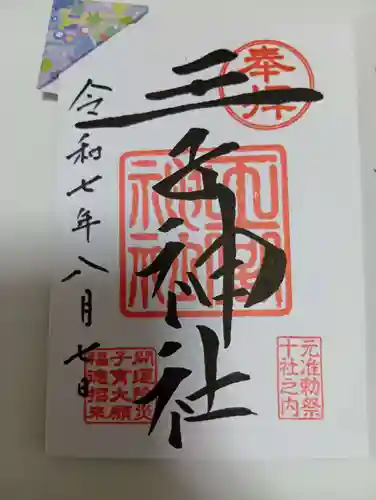 奉拝
元准勅祭
十社之内
王子神社
開運除災
子育大願
福徳招来
令和七年八月七日